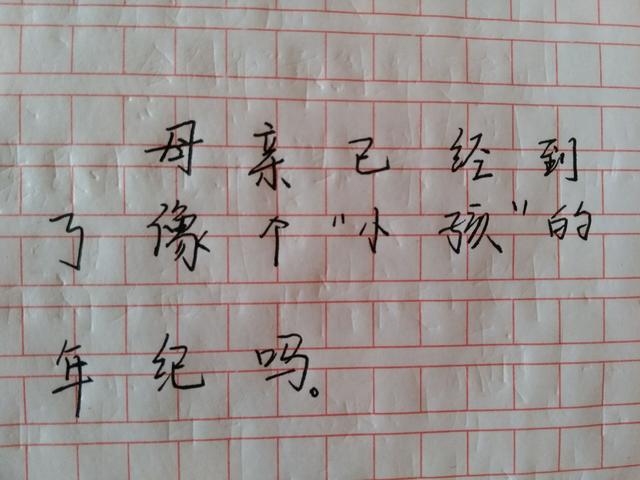 母亲已经到
了像个“小孩”的
年纪吗。